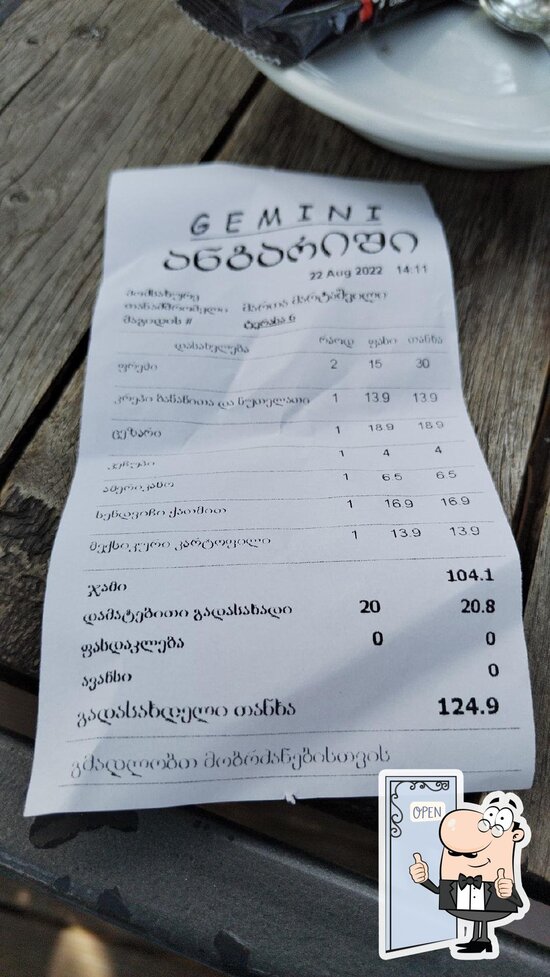 GEMINI
ანგარიში
22 Aug 2022 14:11
მომსახურე
თანამშრომელი მართა მარტაშვილი
მაგიდის # ტერასა 6
დასახელება რაოდ ფასი თანხა
ფრეში 2 15 30
კრეპი ბანანითა და ნუთელათი 1 13.9 13.9
ცეზარი 1 18.9 18.9
კეჩუპი 1 4 4
ამერიკანო 1 6.5 6.5
სენდვიჩი ქათმით 1 16.9 16.9
მექსიკური კარტოფილი 1 13.9 13.9
ჯამი 104.1
დამატებითი გადასახადი 20 20.8
ფასდაკლება 0 0
ავანსი 0
გადასახდელი თანხა 124.9
გმადლობთ მობრძანებისთვის
OPEN